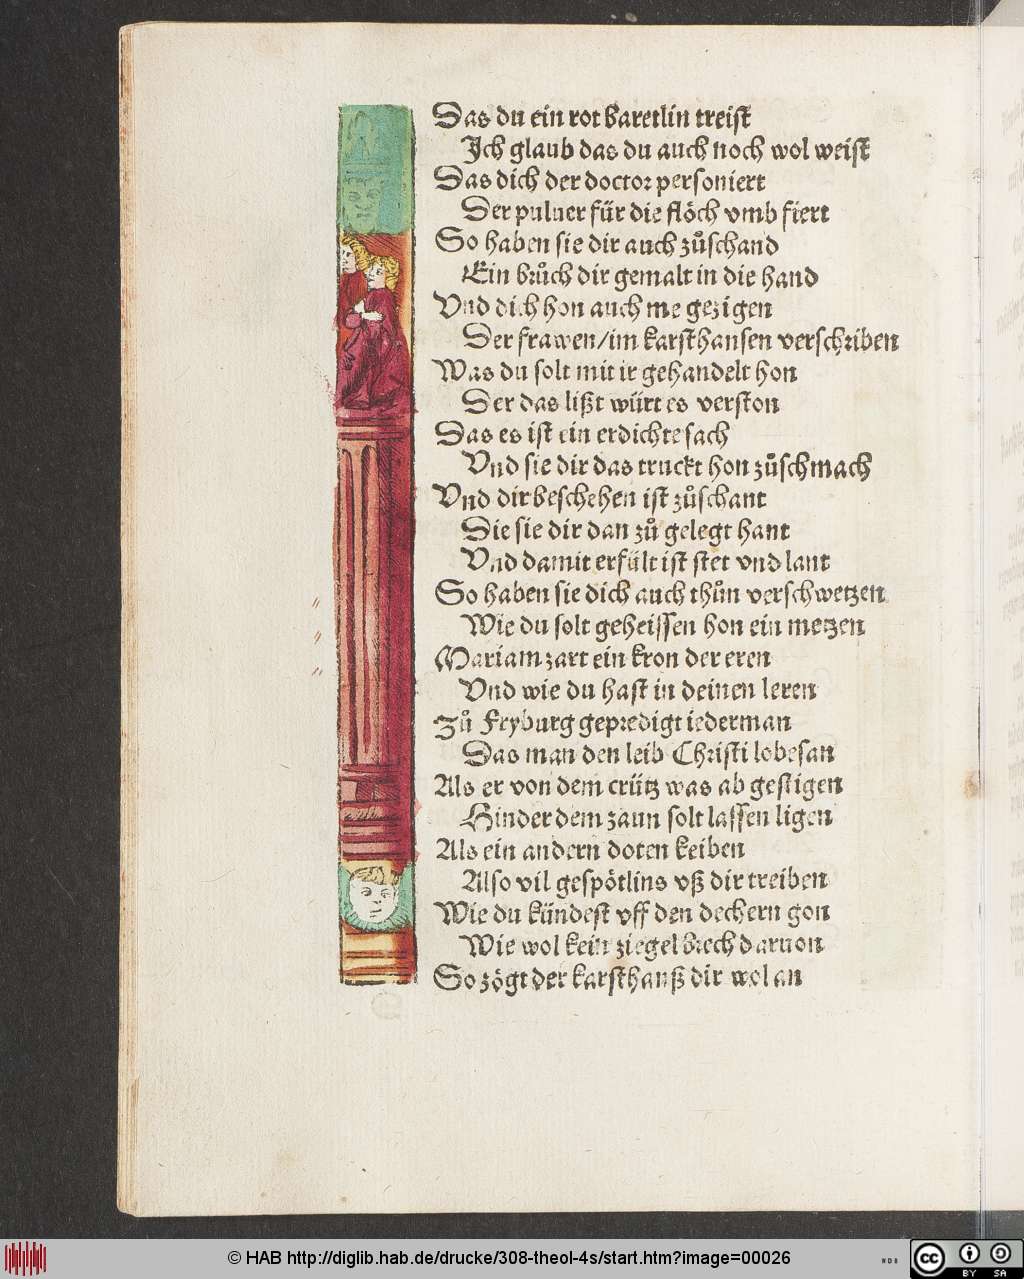 Das du ein rot baretlin treist
Ich glaub das du auch noch wol weist
Das dich der doctor personiert
Der puluer für die flöch vmb fiert
So haben sie dir auch zůschand
Ein brůch dir gemalt in die hand
Vnd dich hon auch me gezigen
Der frawen/im karsthansen verschriben
Was du solt mit ir gehandelt hon
Der das lißt würt es verston
Das es ist ein erdichte sach
Vnd sie dir das truckt hon zůschmach
Vnd dir beschehen ist zůschant
Die sie dir dan zů gelegt hant
Vnd damit erfült ist stet vnd lant
So haben sie dich auch thůn verschwetzen
Wie du solt geheissen hon ein metzen
Mariam zart ein kron der eren
Vnd wie du hast in deinen leren
Zů Fryburg gepredigt iederman
Das man den leib Christi lobesan
Als er von dem crütz was ab gestigen
Hinder dem zaun solt lassen ligen
Als ein andern doten keiben
Also vil gespötlins vß dir treiben
Wie du kündest vff den dechern gon
Wie wol kein ziegel brech daruon
So zögt der karsthanß dir wol an
© HAB http://diglib.hab.de/drucke/308-theol-4s/start.htm?image=00026
WDB
cc BY SA